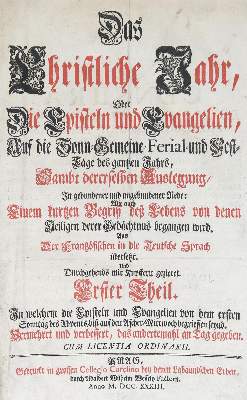 Das
Christliche Jahr,
Oder
Die Episteln und Evangelien,
Auf die Sonn-Gemeine-Ferial-und Fest-
Täge des gantzen Jahrs,
Sambt dererselben Auslegung/
In gebundener und ungebundener Rede:
Wie auch
Einem kurtzen Begriff des Lebens von denen
Heiligen derer Gedächtnus begangen wird.
Aus
Der Frantzösischen in die Teutsche Sprach
übersetzt,
und
Durchgehends mit Kupffern gezieret.
Erster Theil.
In welchem die Episteln und Evangelien von dem ersten
Sonntag des Advents biß auf den Ascher-Mittwoch begriffen seynd.
Vermehret und verbessert, das andertemahl an Tag gegeben.
CUM LICENTIA ORDINARII.
PRAG,
Gedruckt in grossen Collegio Carolino bey denen Labaunischen Erben,
durch Adalbert Wilhelm
Anno M. DCC. XXXIII.